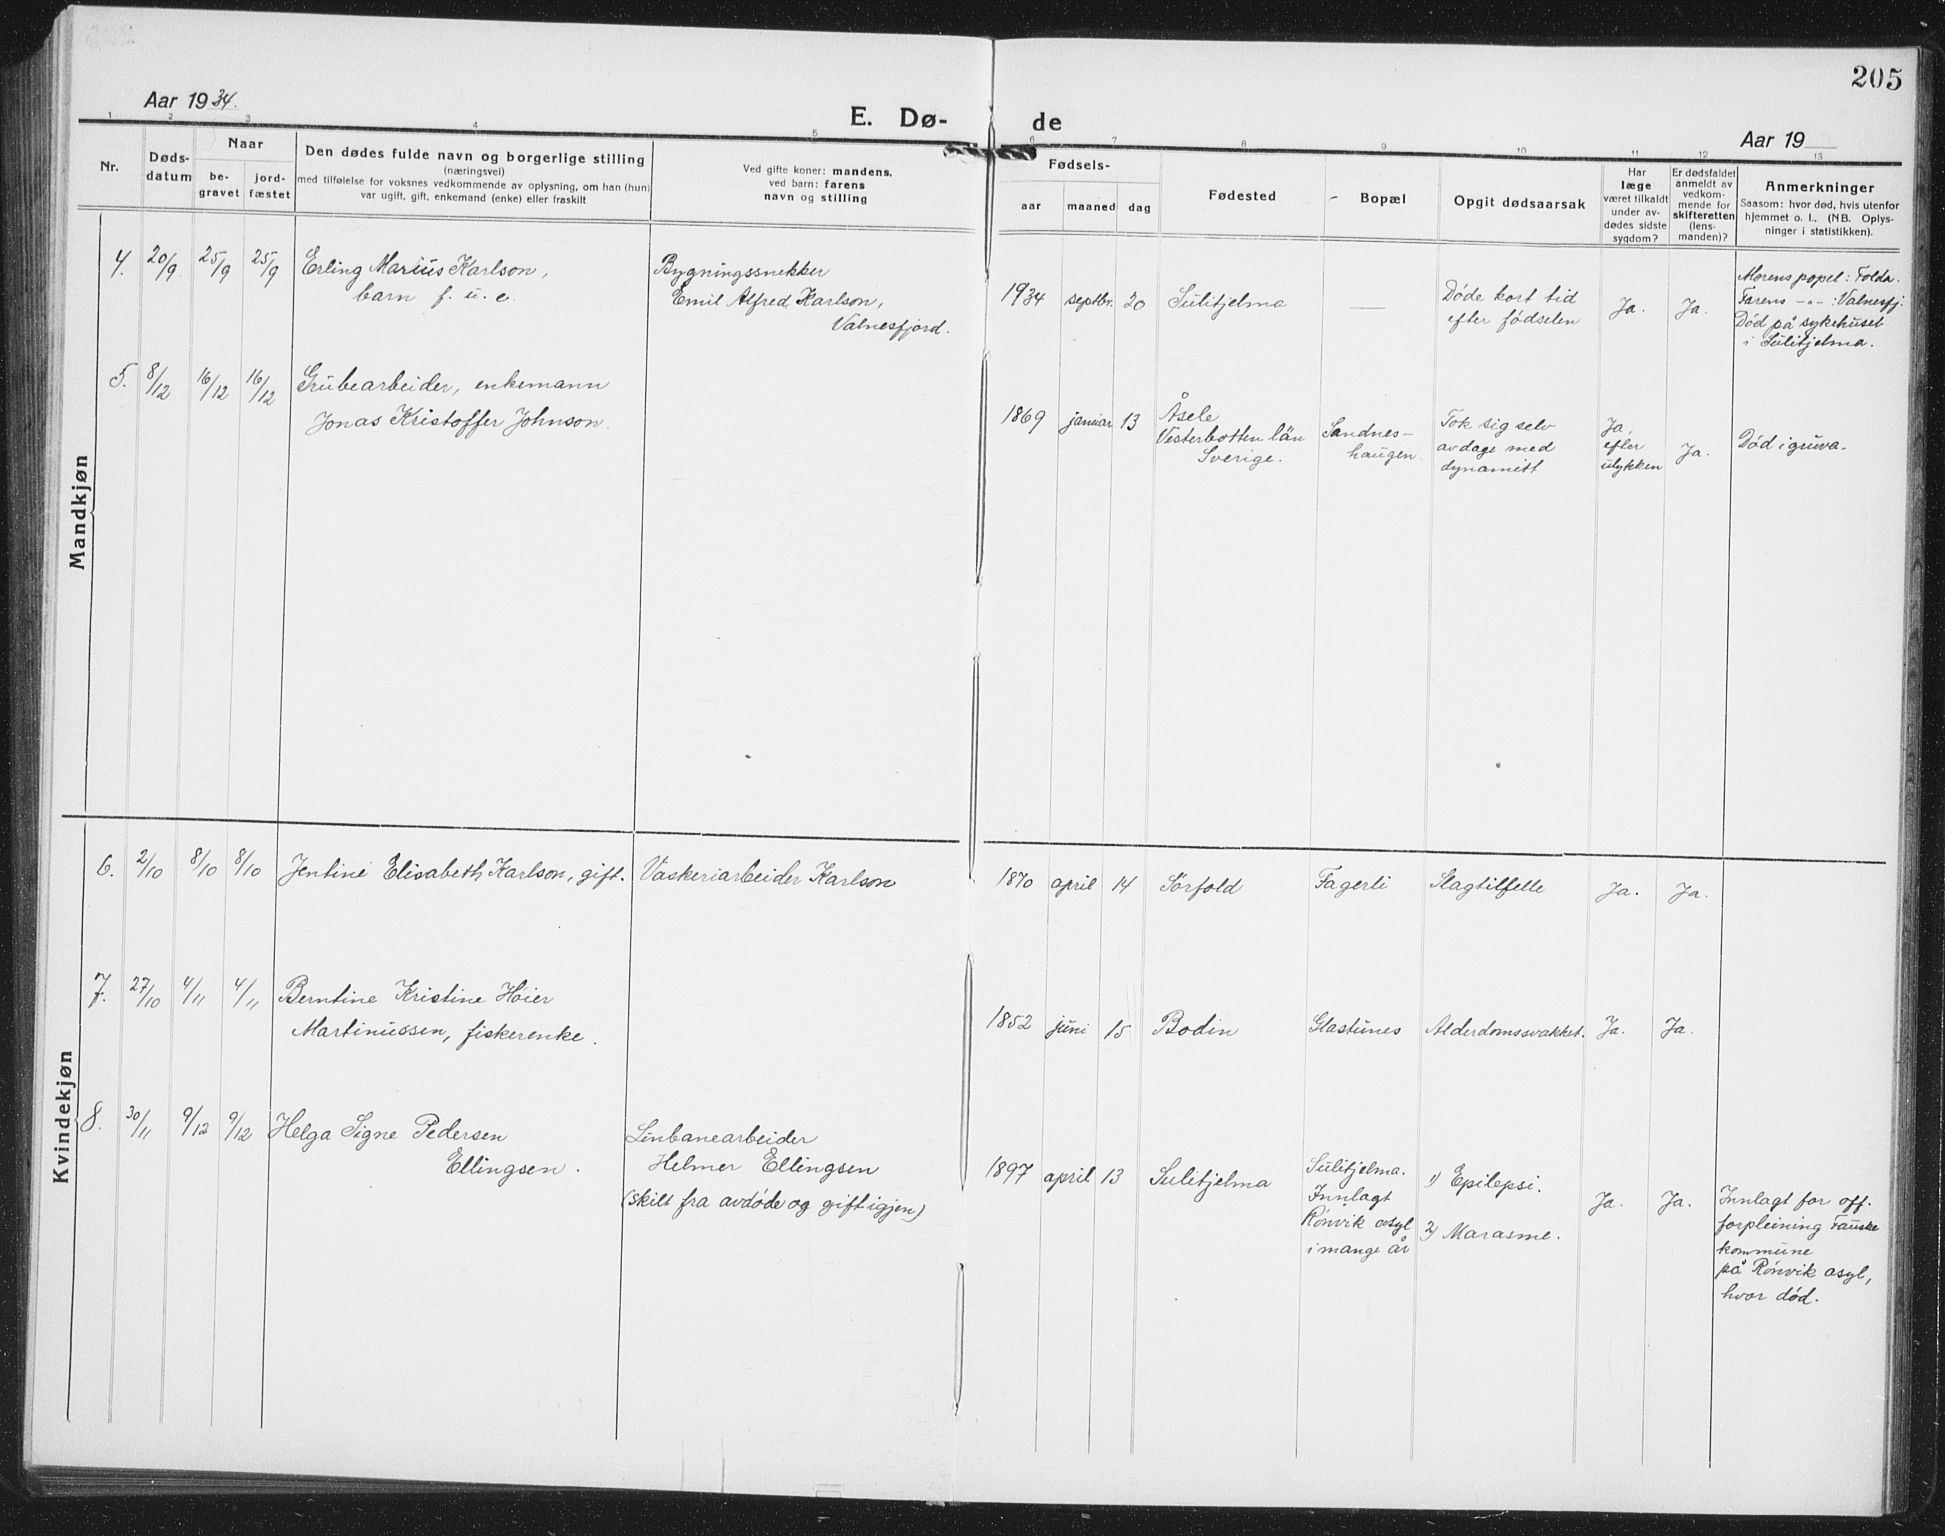 205
Aar 1934.
E. Dø-
de
Aar 19
1 2 3 4 5 6 7 8 9 10 11 12 13
Nr.
Døds-
datum
Naar
be-
gravet
jord-
fæstet
Den dødes fulde navn og borgerlige stilling
(næringsvei)
med tilføielse for voksnes vedkommende av oplysning, om han (hun)
var ugift, gift, enkemand (enke) eller fraskilt
Ved gifte koner: mandens,
ved barn: farens
navn og stilling
Fødsels-
aar
maaned
dag
Fødested
Bopæl
Opgit dødsaarsak
Har
læge
været tilkaldt
under av-
dødes sidste
sygdom?
Er dødsfaldet
anmeldt av
vedkom-
mende for
skifteretten
(lens-
manden)?
Anmerkninger
Saasom: hvor død, hvis utenfor
hjemmet o. l., (NB. Oplys-
ninger i statistikken).
Mandkjøn
4. 20/9 25/9 25/9
Erling Marius Karlson,
barn f. u. e.
Bygningssnekker
Emil Alfred Karlson,
Valnesfjord.
1934 septbr. 20 Sulitjelma —
Døde kort tid
efter fødselen
Ja. Ja.
Morens popel: Folda.
Farens -"- : Valnesfj.
Død på sykehuset
i Sulitjelma.
5. 8/12 16/12 16/12
Grubearbeider, enkemann
Jonas Kristoffer Johnson.
1869 januar 13
Åsele
Vesterbotten län
Sverige.
Sandnes-
haugen.
Tok sig selv
avdage med
dynamitt
Ja,
efter
ulykken
Ja.
Død i gruva.
Kvindekjøn
6. 2/10 8/10 8/10
Jentine Elisabeth Karlson, gift.
Vaskeriarbeider Karlson
1870 april 14 Sørfold Fagerli Slagtilfelle Ja. Ja.
7. 27/10 4/11 4/11
Berntine Kristine Høier
Martinussen, fiskerenke.
1852 juni 15 Bodin Glastunes Alderdomssvakket. Ja. Ja.
8. 30/11 9/12 9/12
Helga Signe Pedersen
Ellingsen.
Linbanearbeider
Helmer Ellingsen
(skilt fra avdøde og gift igjen)
1897 april 13 Sulitjelma
Sulitjelma.
Innlagt
Rønvik asyl
i mange år
1) Epilepsi.
2) Marasme.
Ja. Ja.
Innlagt for off.
forpleining Fauske
kommune
på Rønvik asyl,
hvor død.